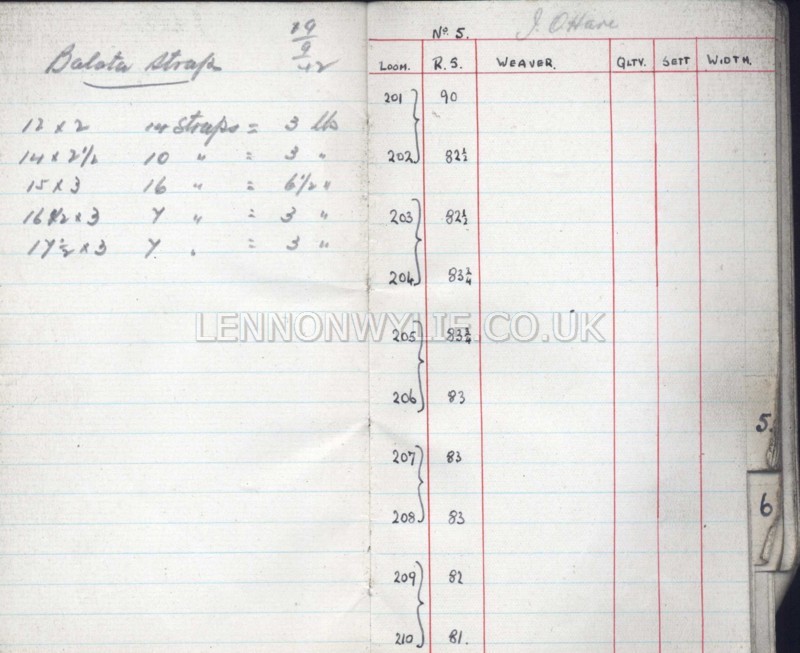 Balata Straps 19/9/42
12 x 2 14 Straps = 3 lbs
14 x 2 1/2 10 " = 3 "
15 x 3 16 " = 6 1/2 "
16 1/2 x 3 7 " = 3 "
17 1/2 x 3 7 " = 3 "
No. 5. J. O'Hare
LOOM. R.S. WEAVER. QLTY. SETT WIDTH.
201 90
202 82 1/2
203 82 1/2
204
205
206 83
207 83
208 83
209 82
210 81.
5.
6
LENNONWYLIE.CO.UK